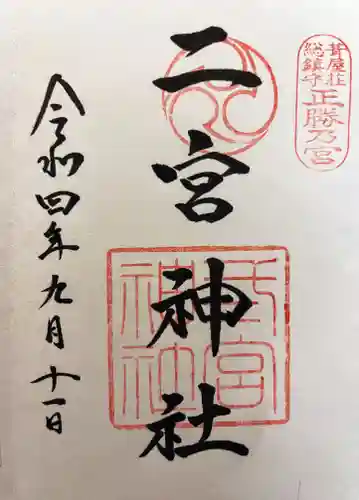 葺屋荘
総鎮守
正勝乃宮
二宮神社
二宮
神社
令和四年九月十一日